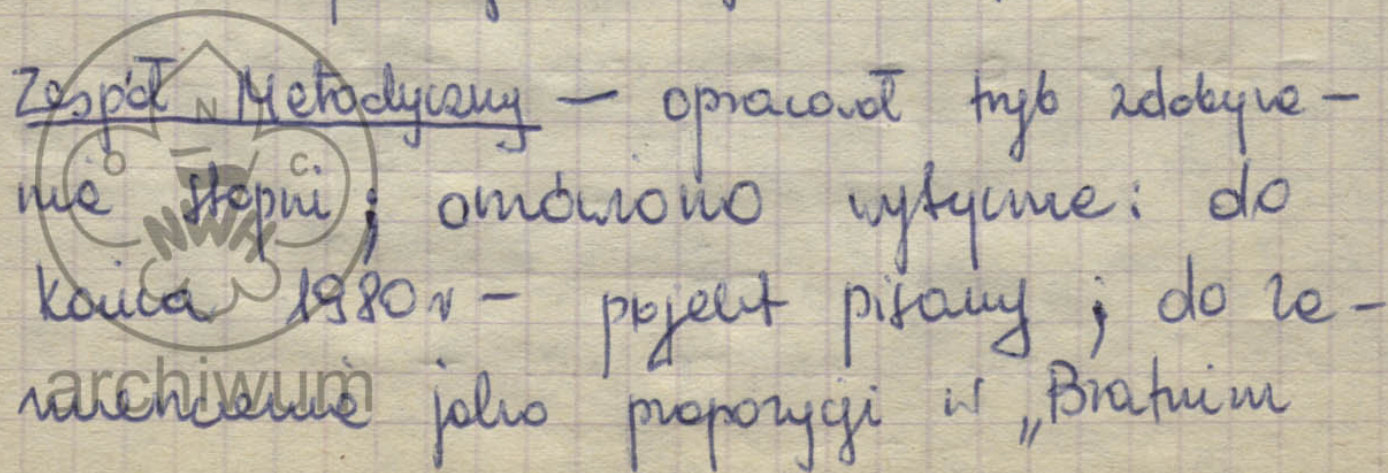 Zespół Metodyczny — opracował tryb zdobywa-
nia stopni; omówiono wytyczne: do
końca 1980 r - projekt pisany; do za-
mieszczenia jako propozycji w „Bratnim
N
O C
NWH
archiwum